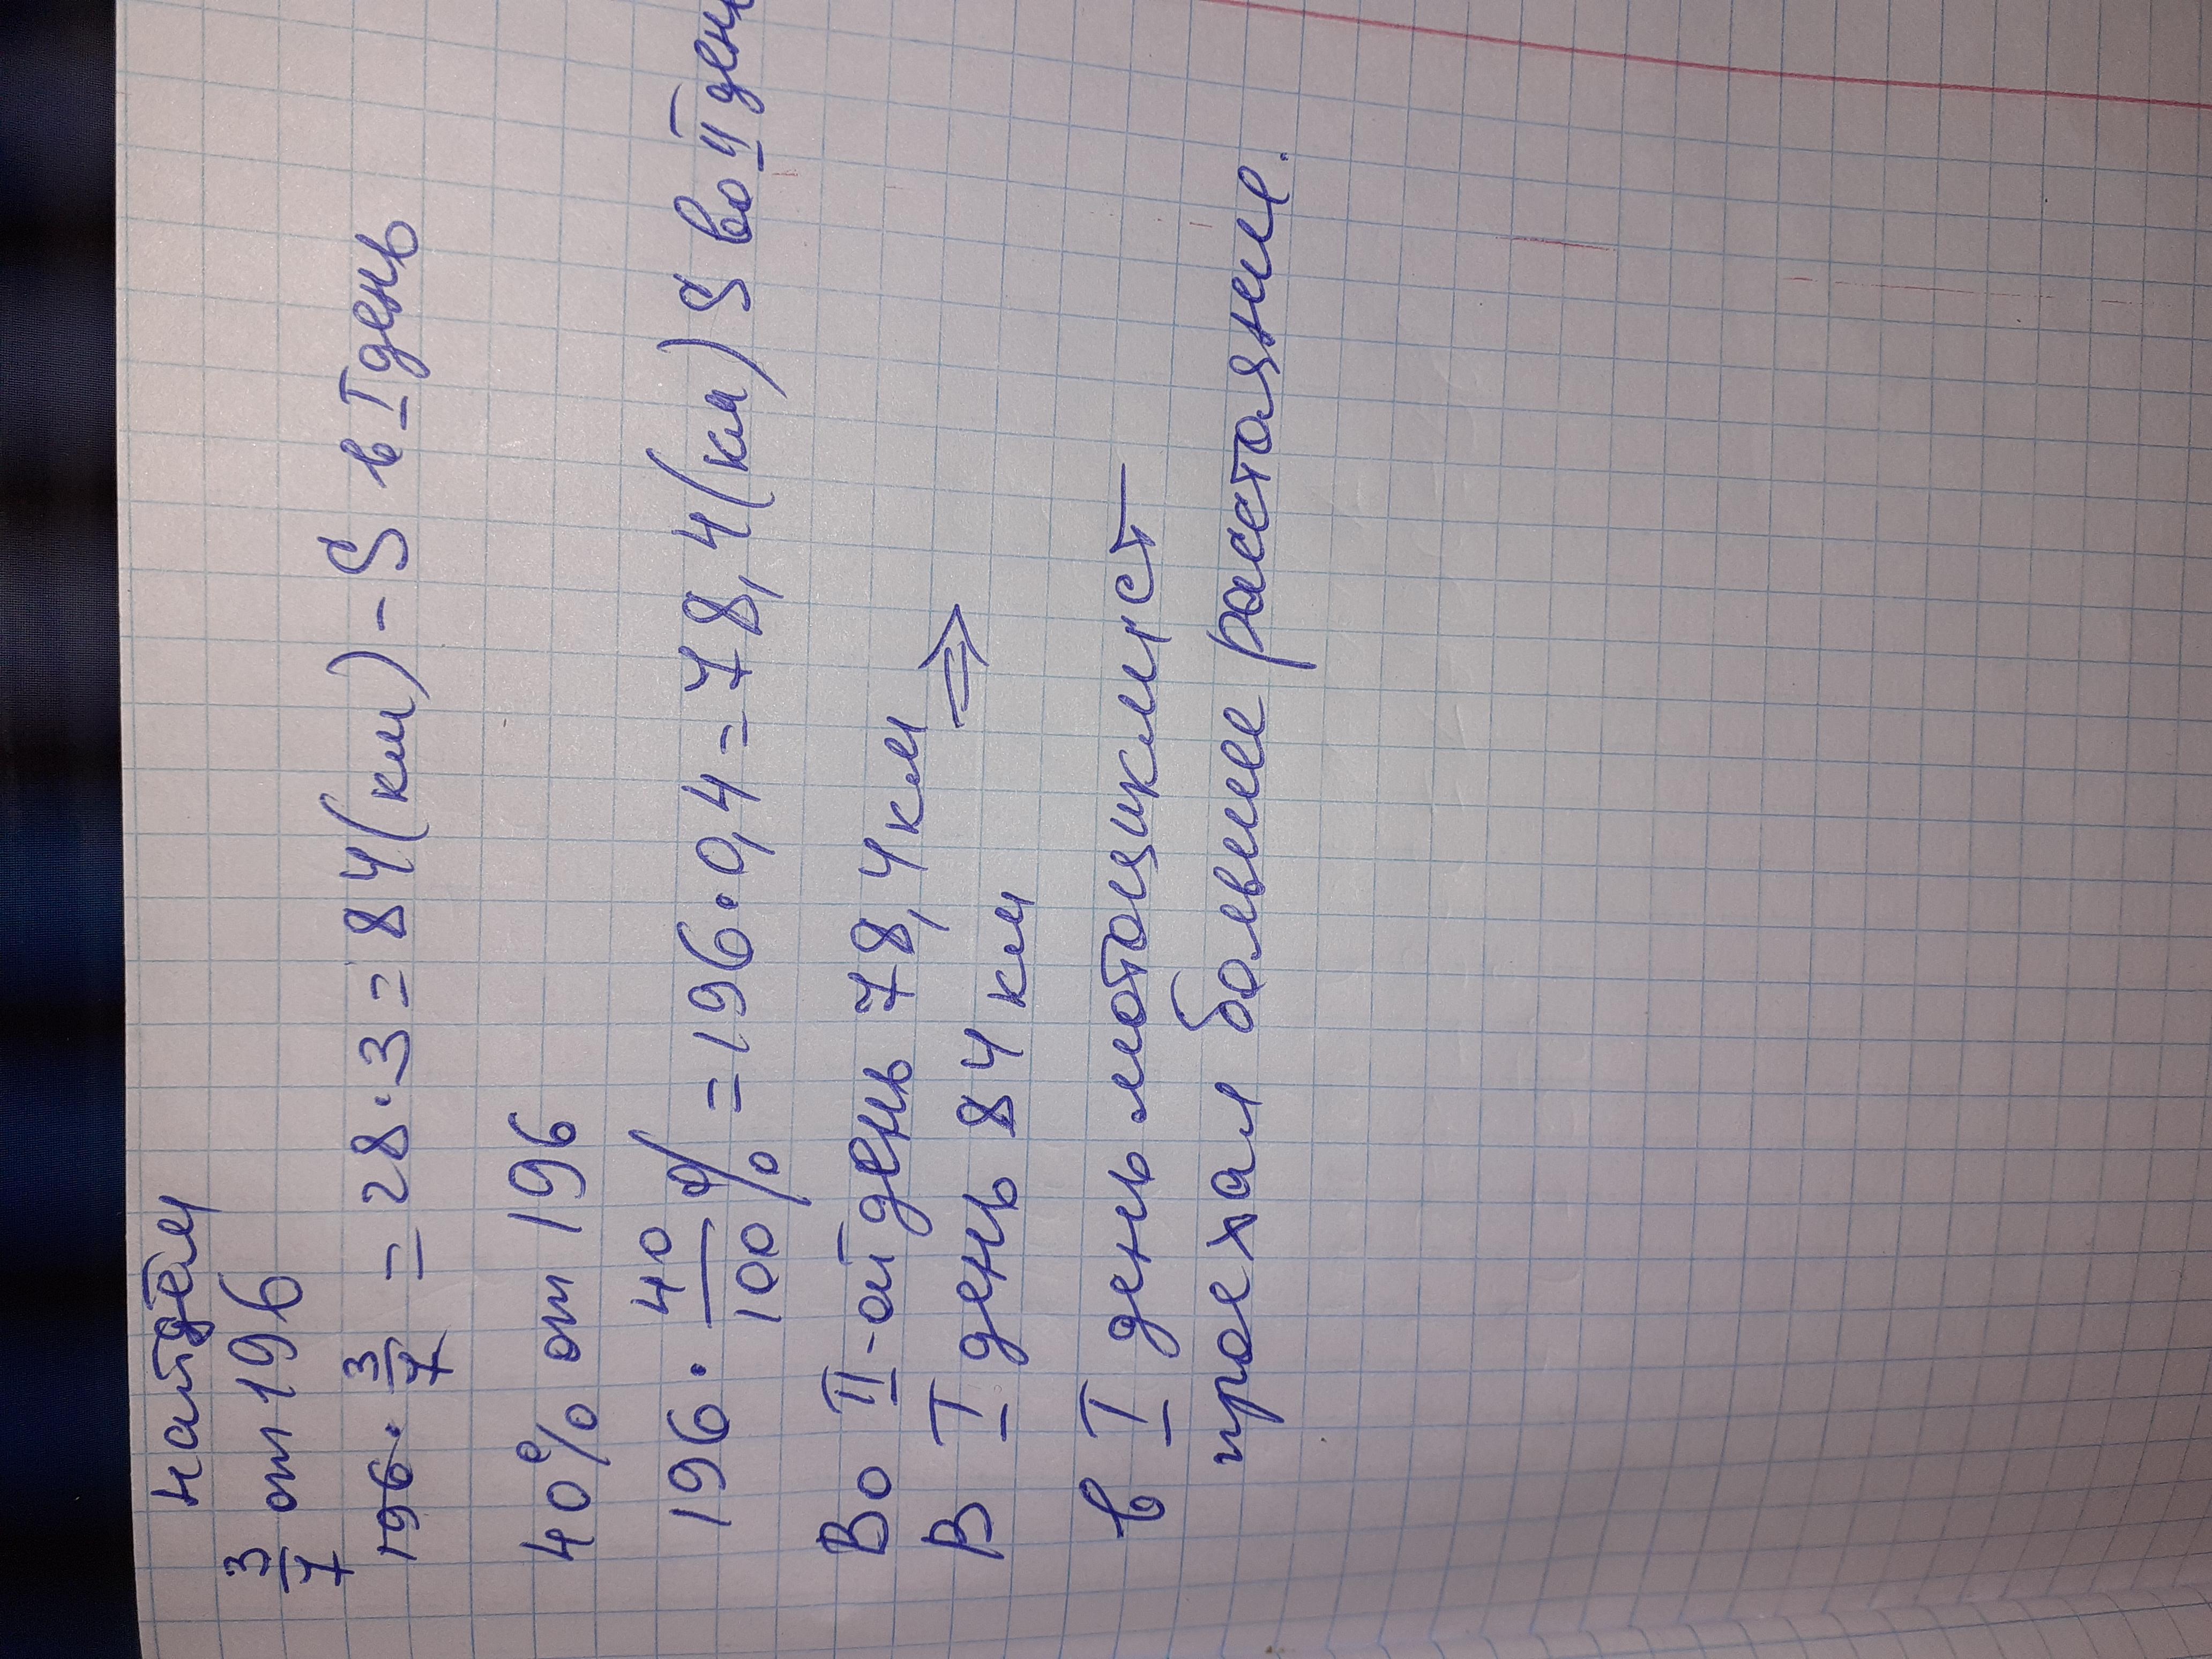 найдём
3/7 от 196
196 · 3/7 = 28 · 3 = 84 (км) - S в I день
40% от 196
196 · 40%/100% = 196 · 0,4 = 78,4 (км) S во II ден
Во II-ой день 78,4 км
В I день 84 км ⇒
в I день мотоциклист
проехал большее расстояние.